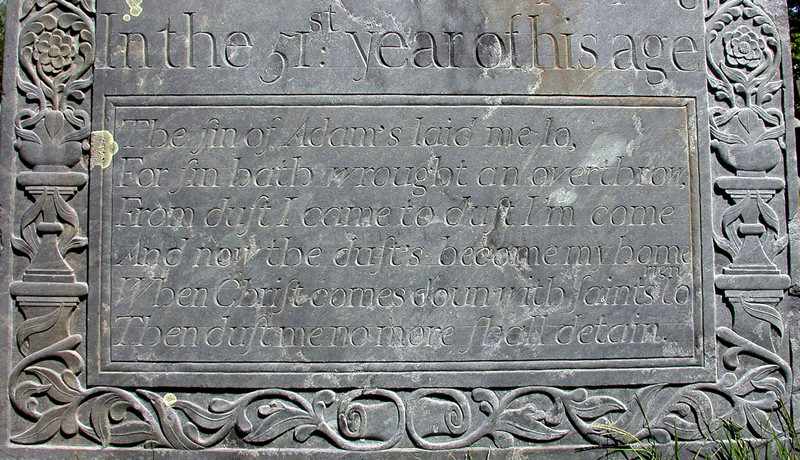 In the 51.st year of his age
The ſin of Adam's laid me lo,
For ſin hath wrought an overthrow,
From duſt I came to duſt I'm come
And now the duſt's become my home
When Chriſt comes doun with ſaints to reign
Then duſt me no more ſhall detain.